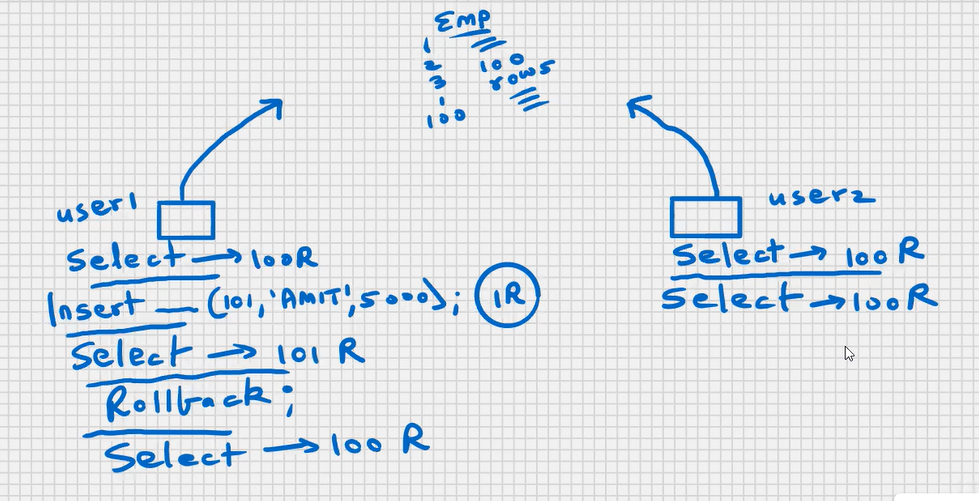 Emp
1
2 100
3 rows
1
100
user1
Select → 100R
Insert — (101,'AMIT',5000); 1R
Select → 101 R
Rollback;
Select → 100 R
user2
Select → 100 R
Select → 100R